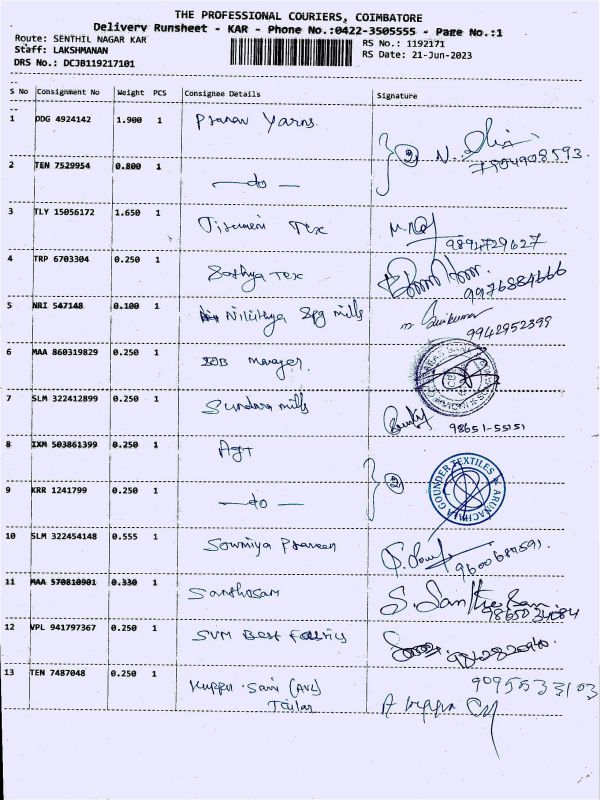 THE PROFESSIONAL COURIERS, COIMBATORE
Delivery Runsheet - KAR - Phone No.:0422-3505555 - Page No.:1
Route: SENTHIL NAGAR KAR
Staff: LAKSHMANAN
DRS No.: DCJB119217101
RS No.: 1192171
RS Date: 21-Jun-2023
S No Consignment No Weight PCS Consignee Details Signature
1 DDG 4924142 1.900 1 Pranav Yarns
2 TEN 7529954 0.800 1 —do—
2
3 TLY 15056172 1.650 1 Tex
9894729627
4 TRP 6703304 0.250 1 Sathya Tex
9976884666
5 NRI 547148 0.100 1 Spg mills
9942952399
6 MAA 860319829 0.250 1 manager.
7 SLM 322412899 0.250 1 Sundara mills
98651-55151
8 IXM 503861399 0.250 1 AGT
9 KRR 1241799 0.250 1 —do—
2
ARUNACHALA GOUNDER TEXTILES
10 SLM 322454148 0.555 1 Sowmiya Praveen
11 MAA 570810901 0.330 1 Santhosam
12 VPL 941797367 0.250 1 SVM Best Fabrics
13 TEN 7487048 0.250 1 Kuppu Sami (AVL)
Tailar
9095533103